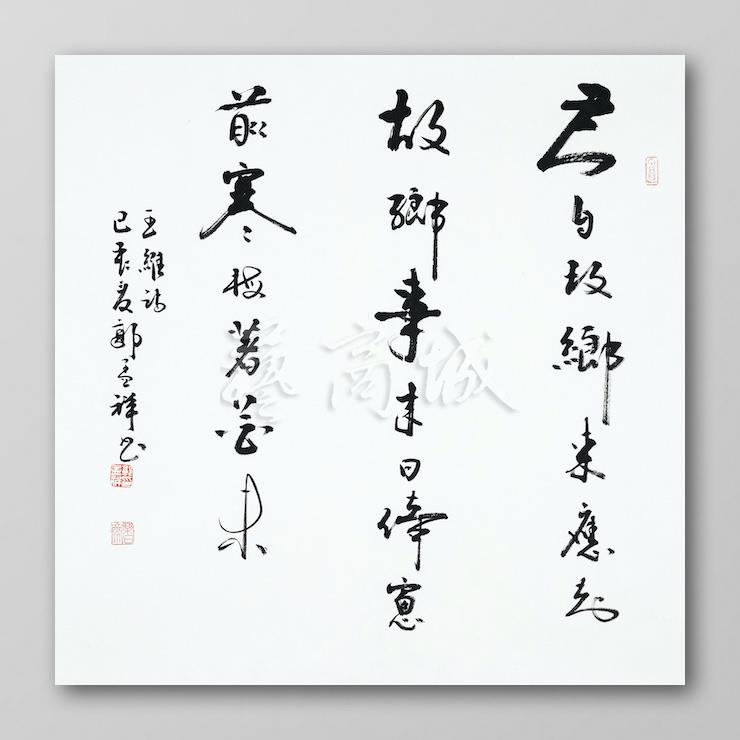 君自故鄉來應知
故鄉事來日倚窗
前寒梅著花未
王維詩
己亥夏郭孟祥書
藝高城